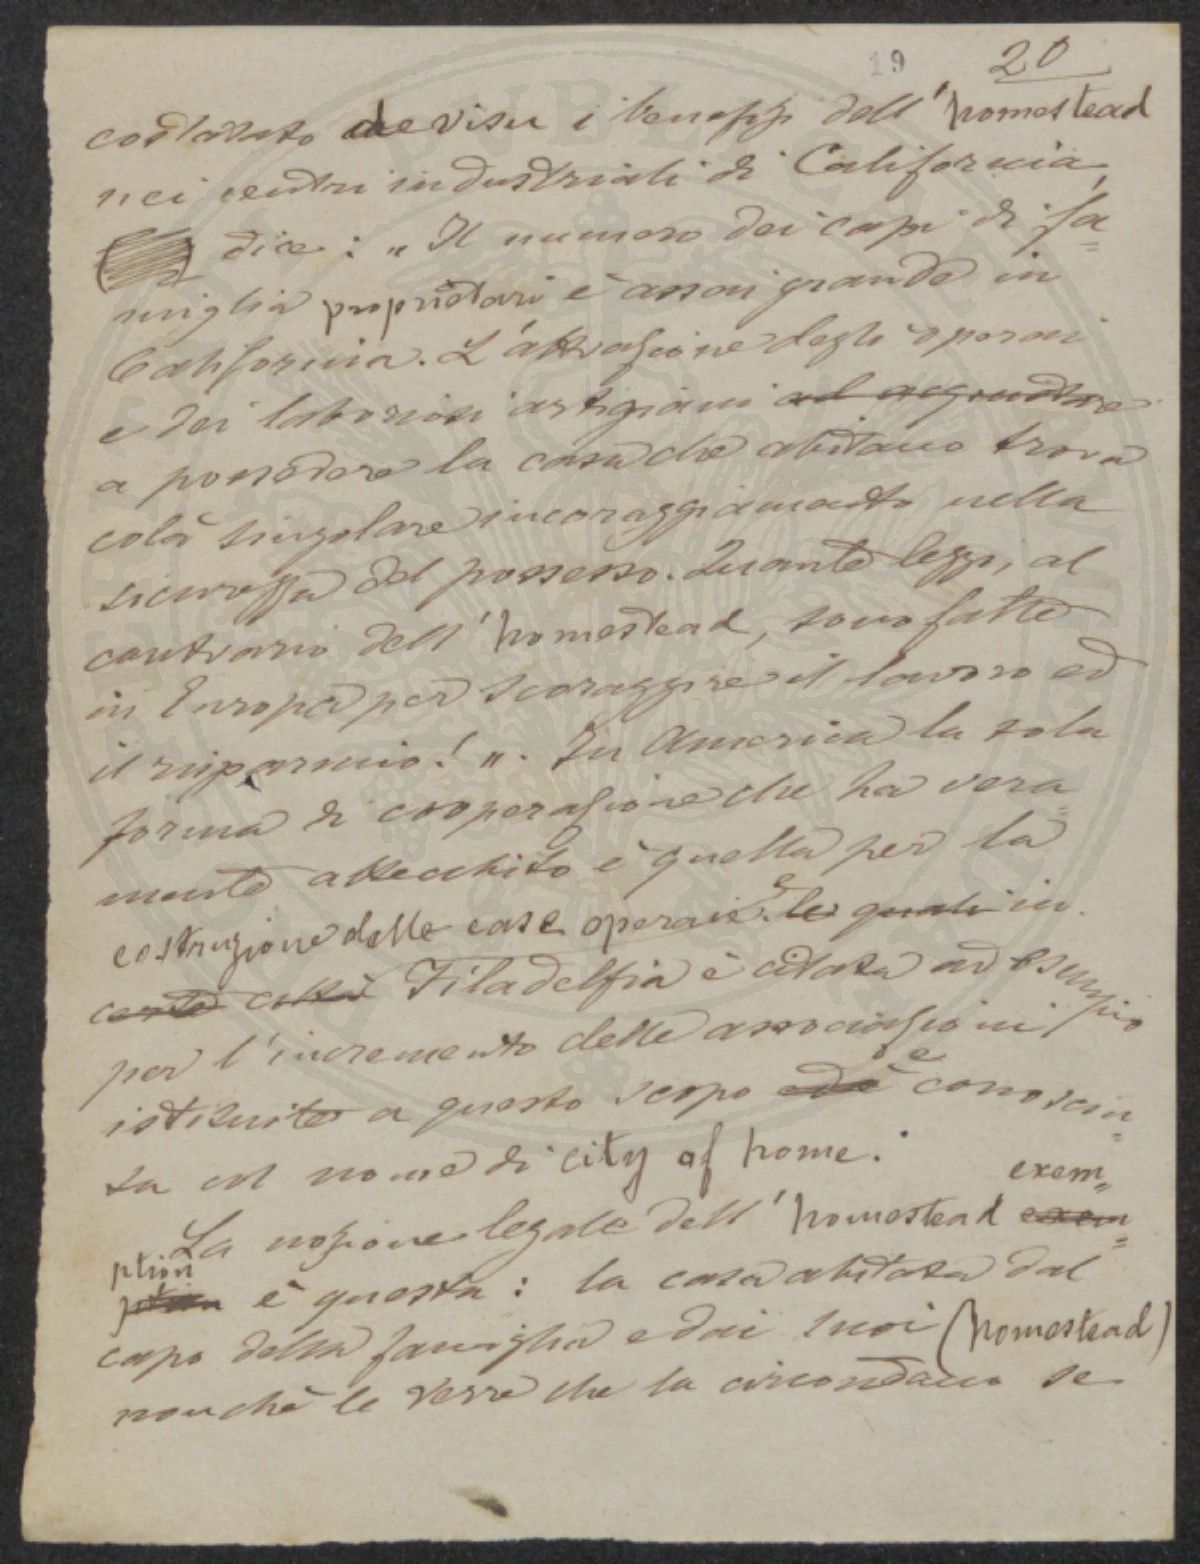 19 20
costatato de visu i benefizi dell'homestead
nei centri industriali di California,
dice: „Il numero dei capi di fa=
miglia proprietari è assai grande in
California. L'attrazione degli operai
e dei laboriosi artigiani ad acquistare
a possedere la casa che abitano trova
colà singolare incoraggiamento nella
sicurezza del possesso. Quante leggi, al
contrario dell'homestead, sono fatte
in Europa per scoraggire il lavoro ed
il risparmio! „. In America la sola
forma di cooperazione che ha vera=
mente attecchito è quella per la
costruzione delle case operaie. le quali in
certe città Filadelfia è citata ad esempio
per l'incremento delle associazioni
istituite a questo scopo ed è e conosciu=
ta col nome di city of home.
La nozione legale dell'homestead exem= exem=
ption ption è questa: la casa abitata dal
capo della famiglia e dai suoi (homestead)
nonchè le terre che la circondano se